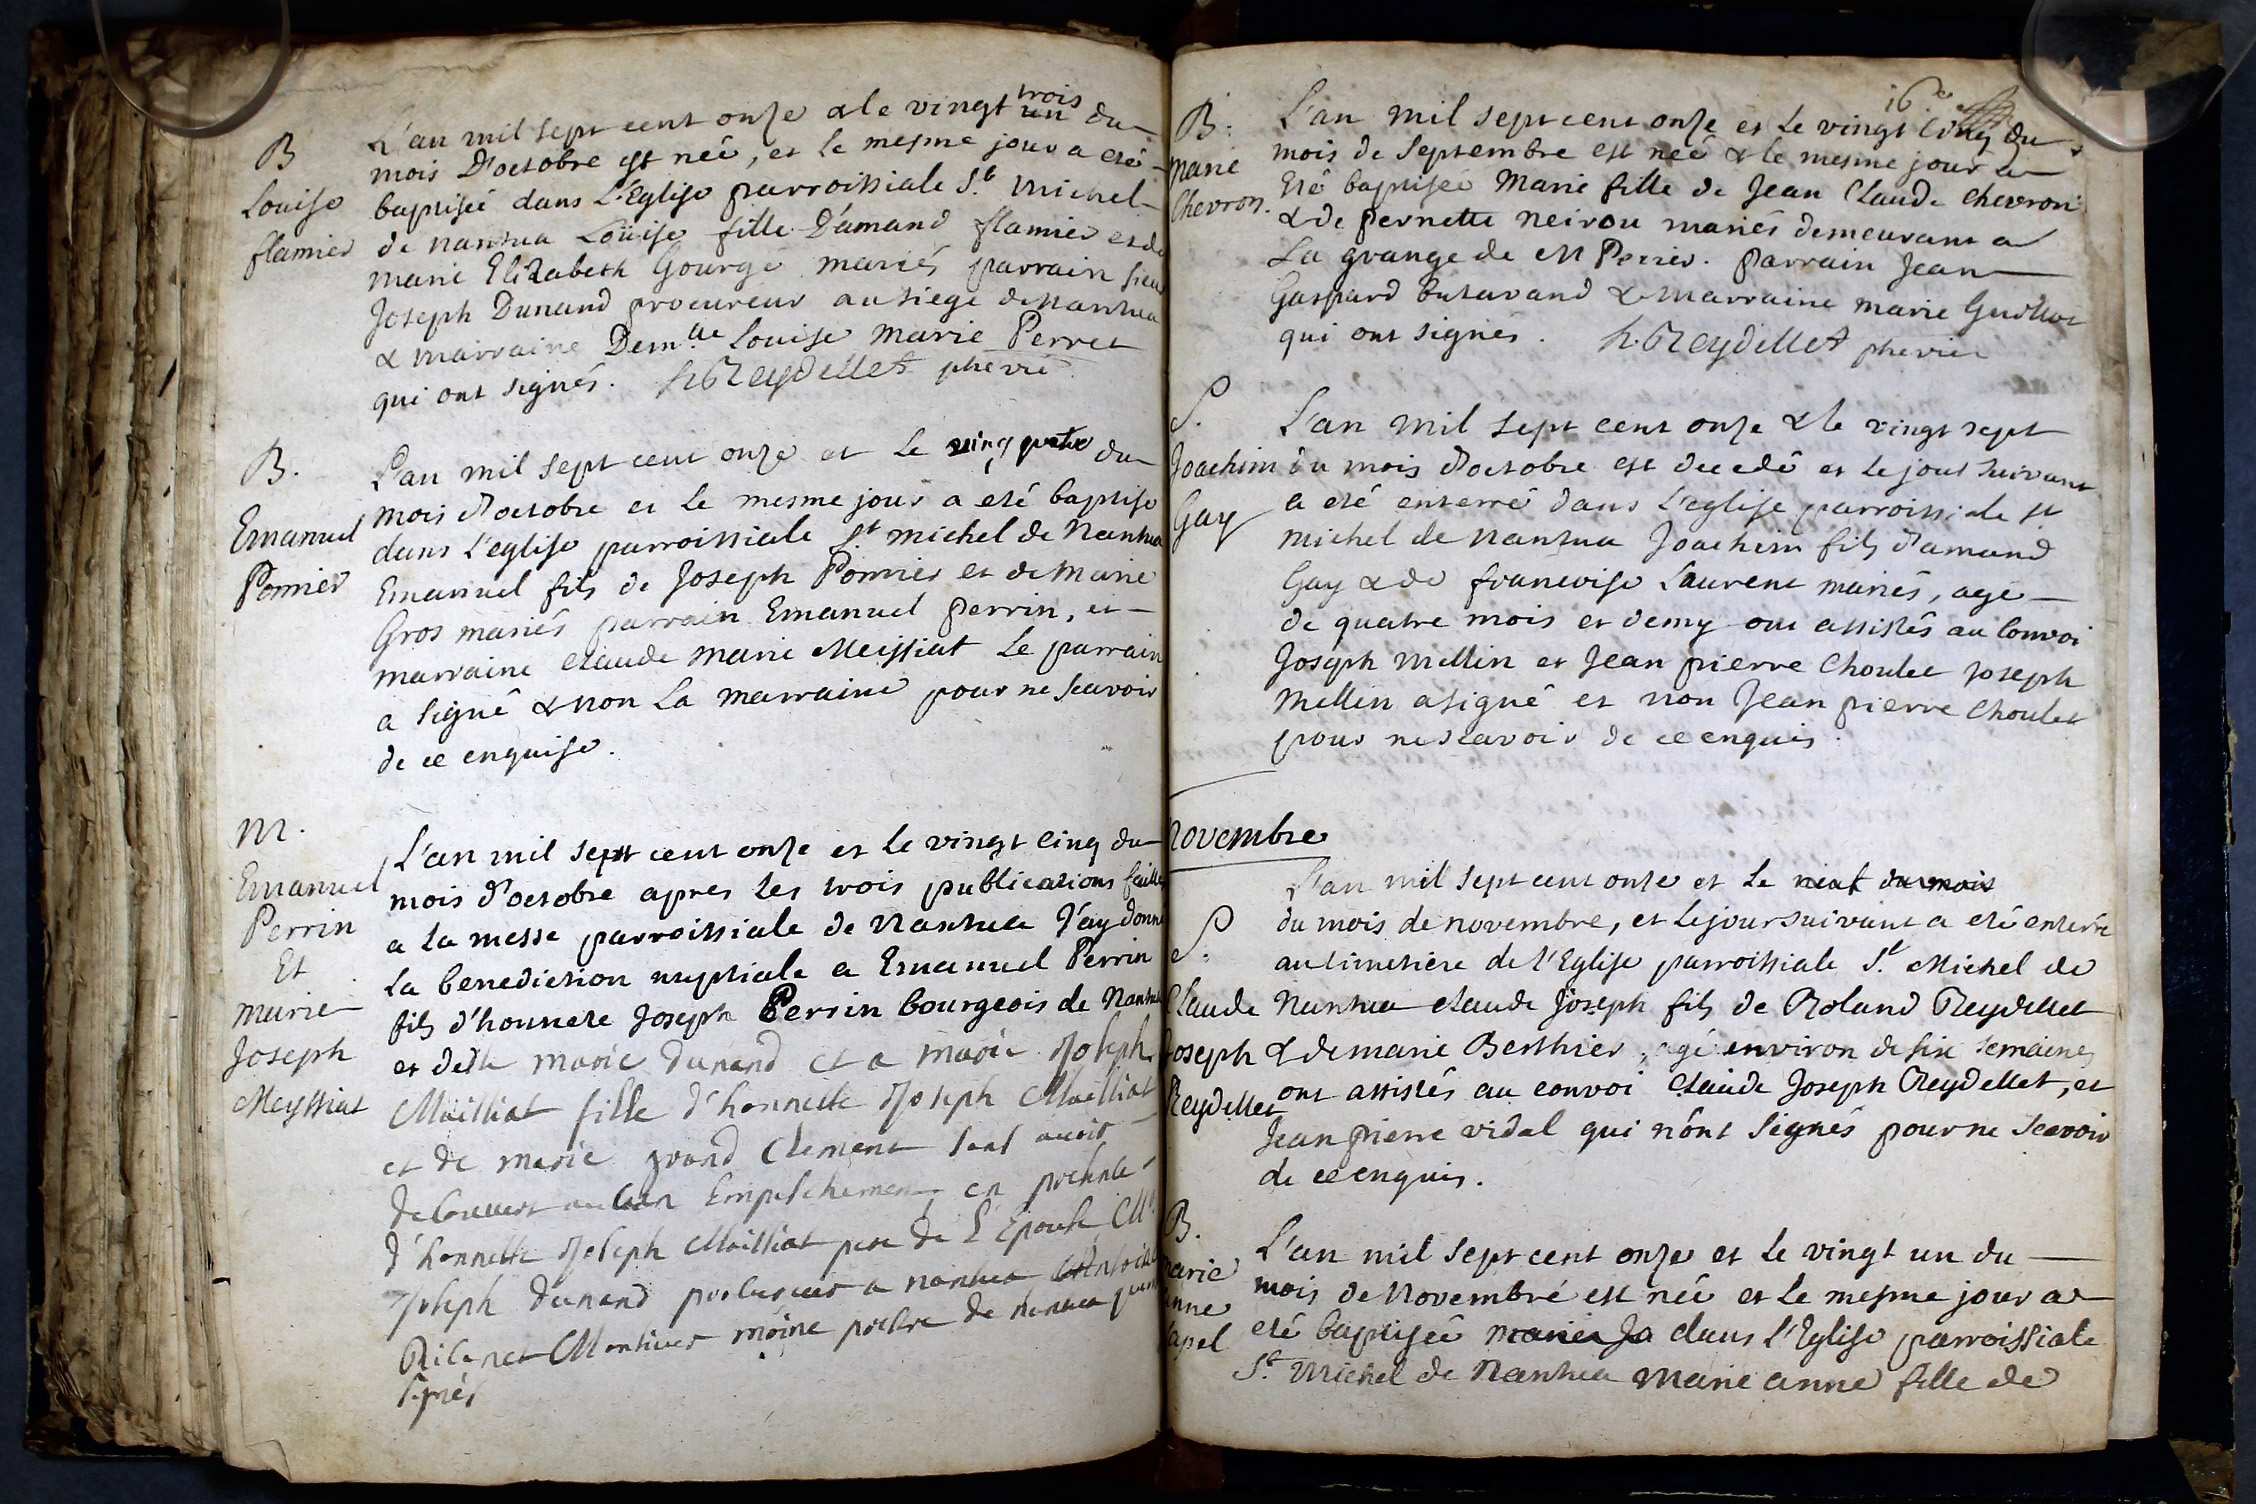 B
Louise
flamier
L'an mil sept cent onze & le vingt trois un du
mois D'octobre est neé, et le mesme jour a eté
baptiseé dans L'Eglise parroissiale St. Michel
de nantua Loüise fille D'amand flamier et de
marie Elizabeth Gourge mariés parrain sieur
Joseph Dunand procureur au siege de nantua
& marraine Demlle Louise Marie Perret
qui ont signés. Reydellet
B.
Emanuel
Pomier
L'an mil sept cent onze et Le vingt quatre du
mois d'octobre et Le mesme jour a eté baptise
dans L'eglise parroissiale St michel de Nantua
Emanuel fils de Joseph Pomier et de Marie
Gros mariés parrain Emanuel Perrin, et
marraine claude marie Meissiat Le parrain
a signé & non La marraine pour ne scavoir
de ce enquise.
M.
Emanuel
Perrin
Et
Marie
Joseph
Meyssiat
L'an mil sept cent onze et Le vingt cinq du
mois d'octobre apres Les trois publications faittes
a La messe parroissiale de Nantua J'ay donné
La benediction nuptiale a Emanuel Perrin
fils d'honnete Joseph Perrin bourgeois de Nantua
et de marie dunand et a marie Joseph
Maissiat fille d'honnette Joseph Maissiat
et de marie grand Clement sans avoir
decouvert aucun Empeschement en presence
d'honnette Joseph Maissiat pere de L'Epouse Mr
Joseph dunand procureur a nantua
moine prestre de nantua
signés
16e
B:
Marie
Chevron.
L'an mil sept cent onze et Le vingt cinq du
mois de septembre est neé & le mesme jour a
eté baptiseé Marie fille de Jean Claude chevron
& de pernette neirou mariés demeurant a
La grange de M Perrier. Parrain Jean
Gaspard butavand & marraine marie Guillot
qui ont signés. Reydellet
S.
Joachim
Gay
L'an mil sept cent onze & le vingt sept
du mois d'octobre est decedé et Le jour suivant
a eté enterré dans L'eglise parroissiale st
michel de nantua Joachim fils d'amand
Gay & de francoise Laurent mariés, agé
de quatre mois et demy ont assistés au convoi
Joseph mellin et Jean pierre Choulet Joseph
Mellin a signé et non Jean pierre Choulet
pour ne scavoir de ce enquis.
Novembre
S.
Claude
Joseph
Reydellet
L'an mil sept cent onze et Le neuf du mois
du mois de novembre, et Le jour suivant a eté enterré
au cimetiere de l'Eglise parroissiale St. Michel de
Nantua claude Joseph fils de Roland Reydellet
& de marie Berthier, agé environ de six semaines
ont assistés au convoi Claude Joseph Reydellet, et
Jean pierre vidal qui n'ont signés pour ne scavoir
de ce enquis.
B.
marie
anne
L'an mil sept cent onze et Le vingt un du
mois de Novembre est neé et Le mesme jour a
eté baptiseé marie Jo dans L'Eglise parroissiale
St. Michel de Nantua Marie anne fille de